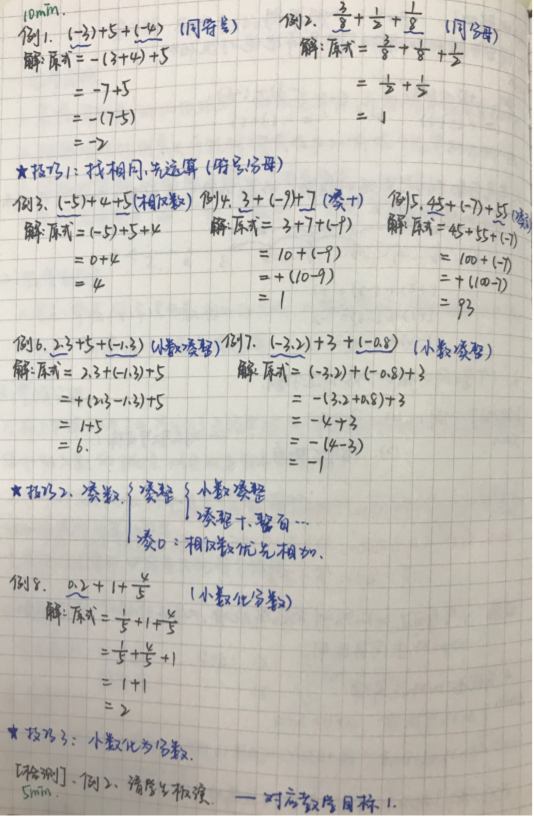 10min.
例1. (-3)+5+(-4) (同符号)
解:原式=-(3+4)+5
=-7+5
=-(7-5)
=-2
例2. 3/8+1/2+1/8 (同分母)
解:原式=3/8+1/8+1/2
=1/2+1/2
=1
★技巧1:找相同,先运算(符号,分母)
例3.(-5)+4+5(相反数)
解:原式=(-5)+5+4
=0+4
=4
例4. 3+(-9)+7 (凑十)
解:原式=3+7+(-9)
=10+(-9)
=+(10-9)
=1
例5. 45+(-7)+55 (凑百)
解:原式=45+55+(-7)
=100+(-7)
=+(100-7)
=93
例6. 2.3+5+(-1.3) (小数凑整)
解:原式=2.3+(-1.3)+5
=+(2.3-1.3)+5
=1+5
=6.
例7. (-3.2)+3+(-0.8) (小数凑整)
解:原式=(-3.2)+(-0.8)+3
=-(3.2+0.8)+3
=-4+3
=-(4-3)
=-1
★技巧2、凑数 { 凑整 { 小数凑整
凑整十、整百…
凑0:相反数优先相加.
例8. 0.2+1+4/5 (小数化分数)
解:原式=1/5+1+4/5
=1/5+4/5+1
=1+1
=2
★技巧3:小数化为分数.
[检测].例2、请学生板演 —对应教学目标1.
5min.